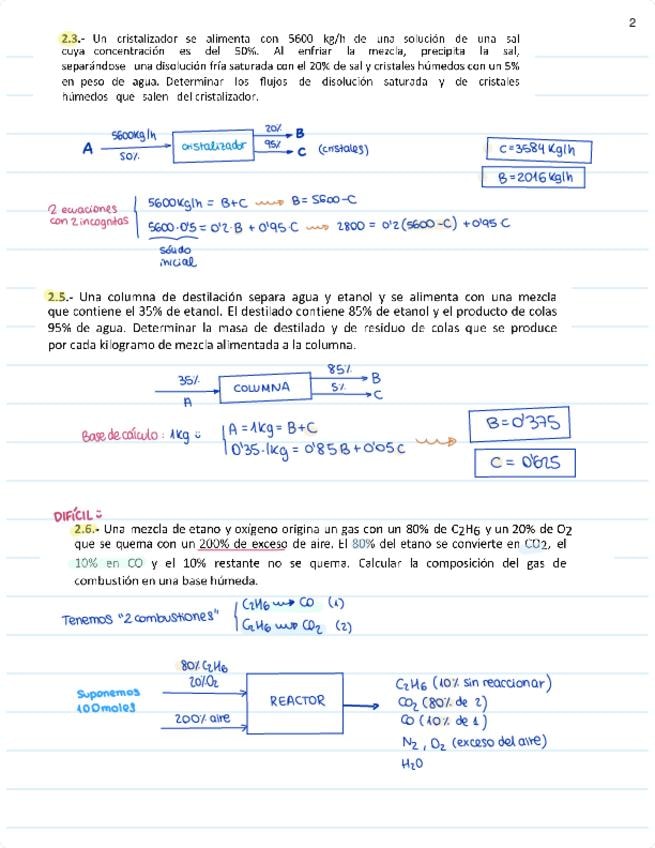 2
2.3.- Un cristalizador se alimenta con 5600 kg/h de una solución de una sal
cuya concentración es del 50%. Al enfriar la mezcla, precipita la sal,
separándose una disolución fría saturada con el 20% de sal y cristales húmedos con un 5%
en peso de agua. Determinar los flujos de disolución saturada y de cristales
húmedos que salen del cristalizador.
A 5600kg/h 50% cristalizador 20% B
95% C (cristales)
C=3584 Kg/h
B=2016 Kg/h
2 ecuaciones
con 2 incognitas
5600Kg/h = B+C B= 5600-C
5600·0'5 = 0'2·B + 0'95·C 2800 = 0'2(5600-C) +0'95 C
sólido
inicial
2.5.- Una columna de destilación separa agua y etanol y se alimenta con una mezcla
que contiene el 35% de etanol. El destilado contiene 85% de etanol y el producto de colas
95% de agua. Determinar la masa de destilado y de residuo de colas que se produce
por cada kilogramo de mezcla alimentada a la columna.
35% A COLUMNA 85% B
5% C
Base de cálculo: 1kg
A=1kg= B+C
0'35·1kg = 0'85B+0'05C
B=0'375
C= 0'625
DIFÍCIL
2.6.- Una mezcla de etano y oxígeno origina un gas con un 80% de C2H6 y un 20% de O2
que se quema con un 200% de exceso de aire. El 80% del etano se convierte en CO2, el
10% en CO y el 10% restante no se quema. Calcular la composición del gas de
combustión en una base húmeda.
Tenemos "2 combustiones"
C2H6 CO (1)
C2H6 CO2 (2)
Suponemos
100moles
80% C2H6
20% O2
200% aire
REACTOR
C2H6 (10% sin reaccionar)
CO2 (80% de 2)
CO (10% de 1)
N2, O2 (exceso del aire)
H2O